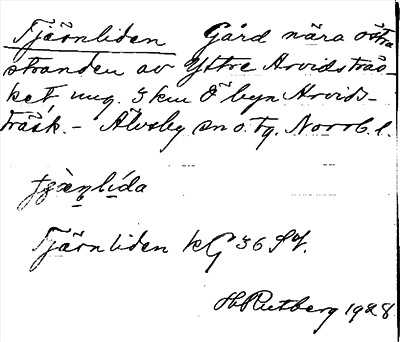 Tjärnliden Gård nära östra
stranden av Yttre Arvidsträs-
ket ung. 3 km Ö byn Arvids-
träsk. - Älvsby sn o. tg. Norrb. l.
Tjärnliden kG 36
H Rutberg 1928